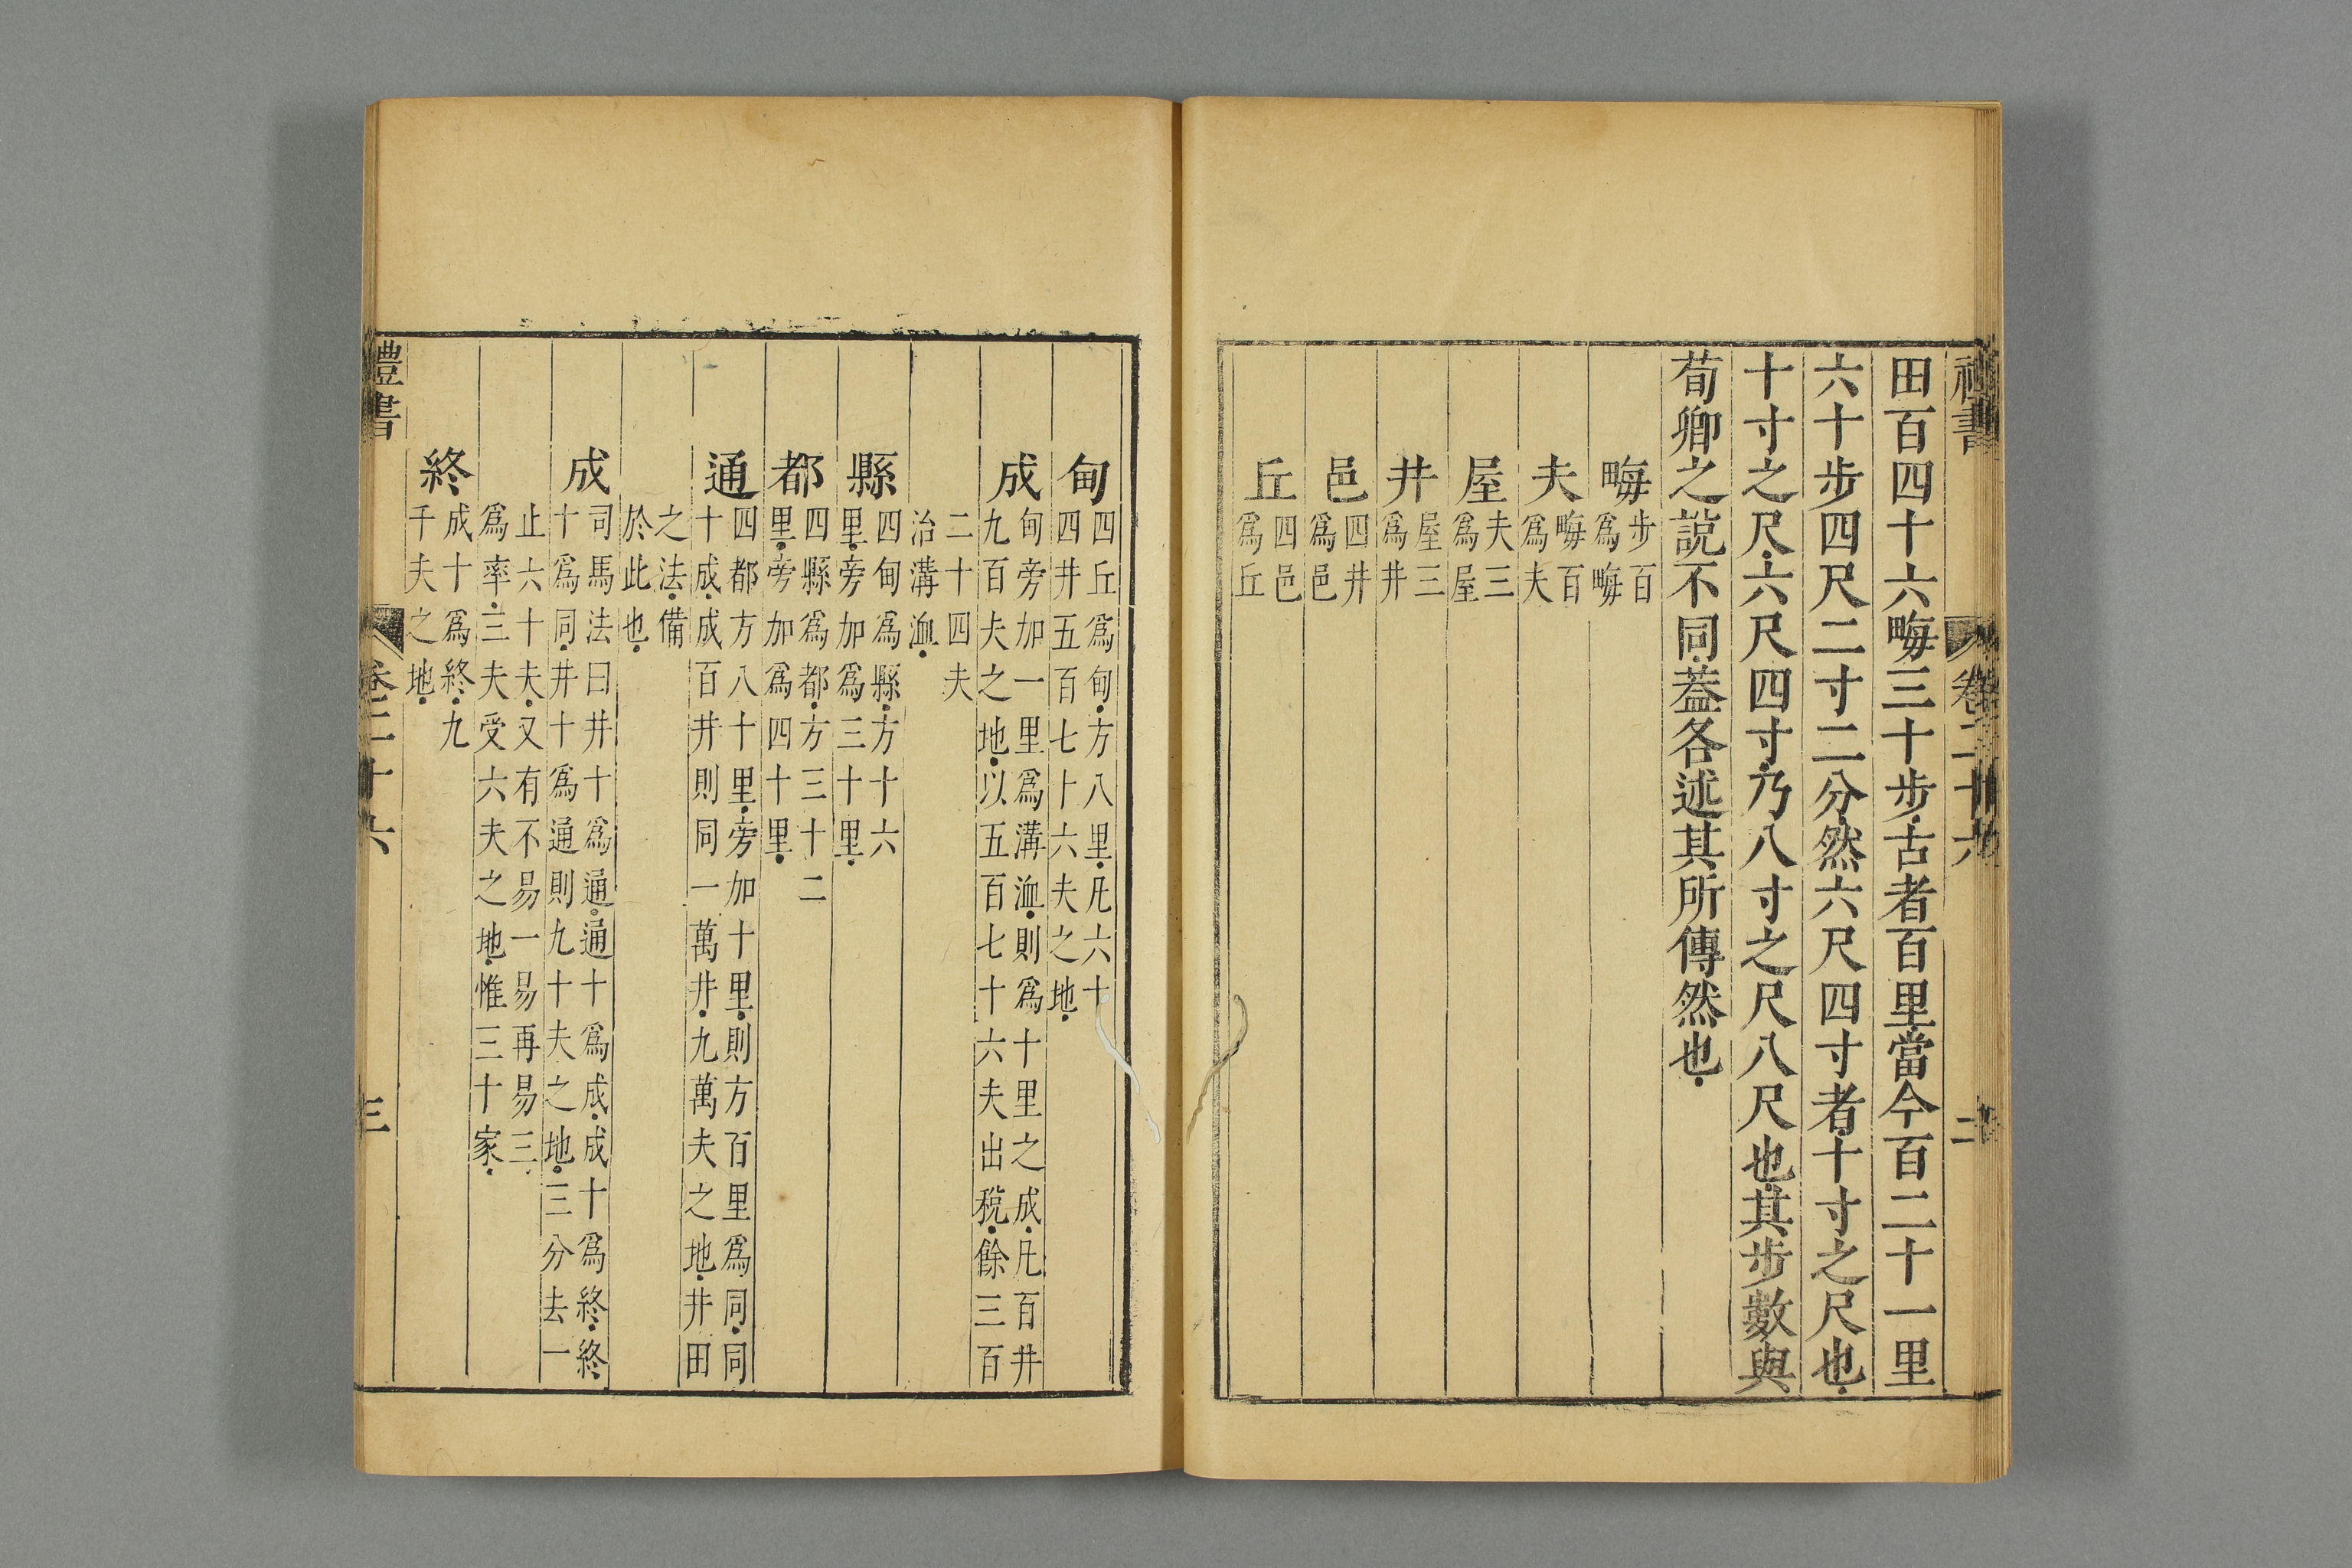 禮書 卷二十六 二
田百四十六畮三十步古者百里當今百二十一里
六十步四尺二寸二分然六尺四寸者十寸之尺也
十寸之尺六尺四寸乃八寸之尺八尺也其步數與
荀卿之說不同蓋各述其所傳然也
畮 步百
爲畮
夫 畮百
爲夫
屋 夫三
爲屋
井 屋三
爲井
邑 四井
爲邑
丘 四邑
爲丘
甸 四丘爲甸方八里凡六十
四井五百七十六夫之地
成 甸旁加一里爲溝洫則爲十里之成凡百井
九百夫之地以五百七十六夫出稅餘三百
二十四夫
治溝洫
縣 四甸爲縣方十六
里旁加爲三十里
都 四縣爲都方三十二
里旁加爲四十里
通 四都方八十里旁加十里則方百里爲同同
十成成百井則同一萬井九萬夫之地井田
之法備
於此也
成 司馬法曰井十爲通通十爲成成十爲終終
十爲同井十爲通則九十夫之地三分去一
止六十夫又有不易一易再易三
爲率三夫受六夫之地惟三十家
終 成十爲終九
千夫之地
禮書 卷二十六 三